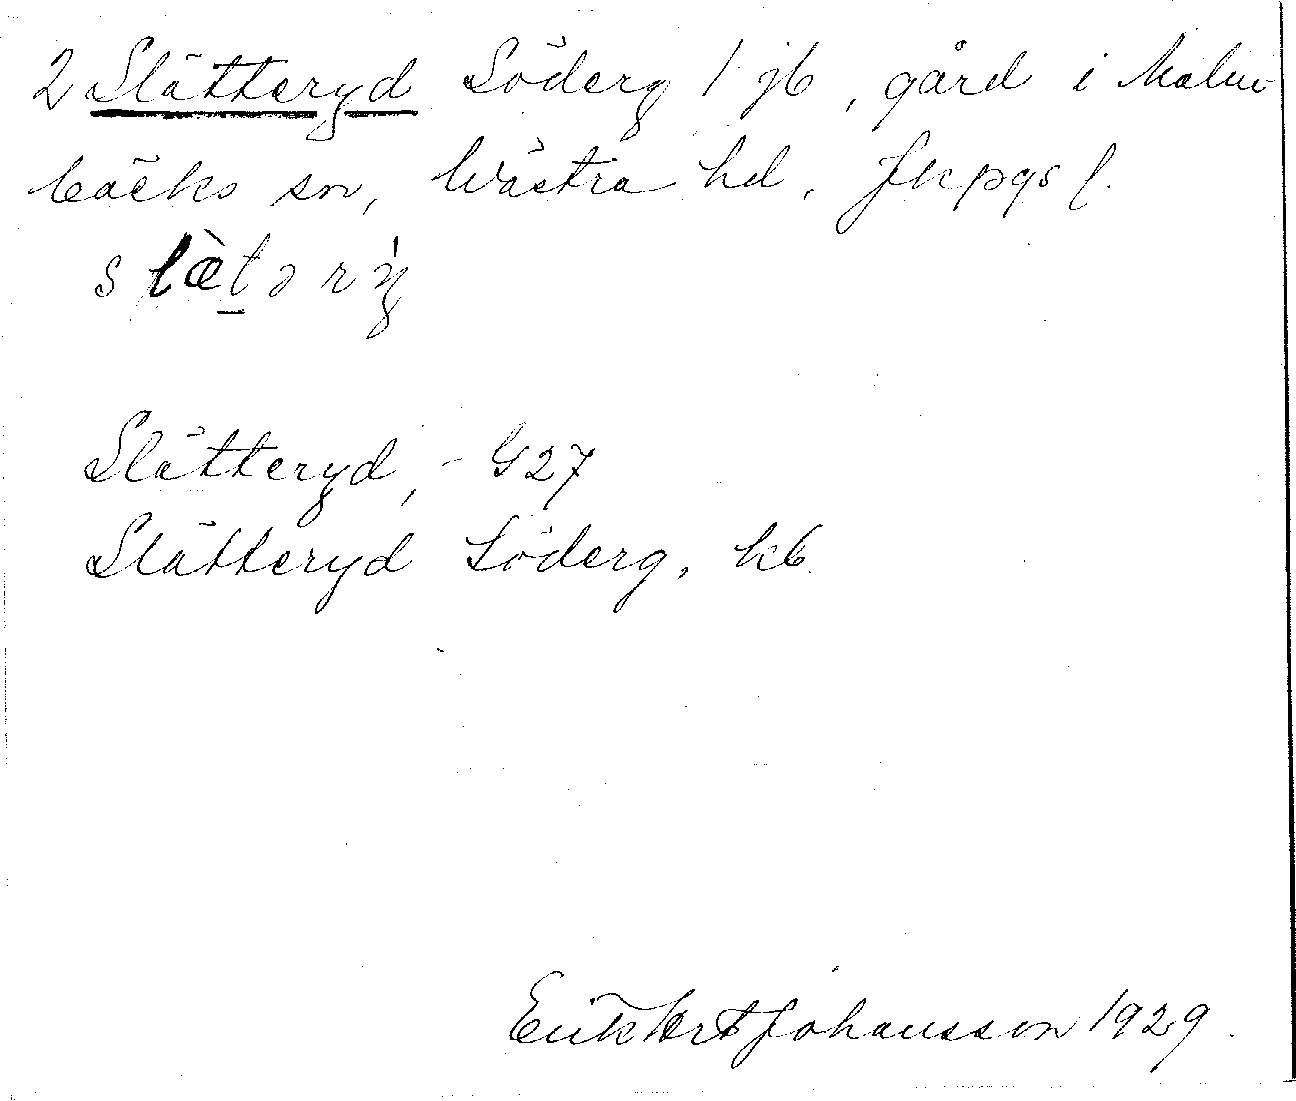 2 Slätteryd Söderg 1 jb, gård i Malm-
bäcks sn, Wästra hd, Jkpgs l.
slæ̀tərẏ
Slätteryd, - G27
Slätteryd Söderg, kb.
Erik Johansson 1929.